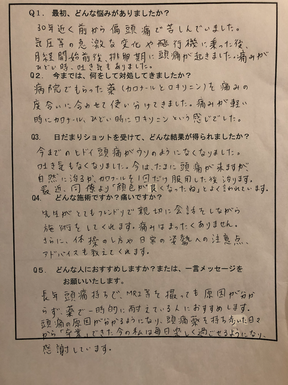 Q1. 最初、どんな悩みがありましたか？
30年近く前から偏頭痛で苦しんでいました。
気圧等の急激な変化や飛行機に乗った後、
月経開始前後、排卵期に頭痛が起きました。痛みが
ひどい時、吐き気もありました。
Q2. 今までは、何をして対処してきましたか？
病院でもらった薬(カロナールとロキソニン)を痛みの
度合いに合わせて使い分けてきました。痛みが軽い
時にカロナール、ひどい時にロキソニンという感じでした。
Q3. 日だまりショットを受けて、どんな結果が得られましたか？
今までのヒドイ頭痛がウソのようになくなりました。
吐き気もなくなりました。今は、たまに頭痛が来ますが、
自然に治るか、カロナールを1回だけ服用した後治ります。
最近、同僚より"顔色が良くなったね"とよく言われています。
Q4. どんな施術ですか？痛いですか？
先生がとてもフレンドリで親切に会話をしながら
施術をしてくれます。痛みはまったくありません。
さらに、体操のし方や日常の姿勢への注意点、
アドバイスも教えてくれます。
Q5. どんな人におすすめしますか？または、一言メッセージを
お願いします！
長年頭痛持ちで、MRI等を撮っても原因が分か
らず、薬で一時的に耐えている人におすすめします。
頭痛の原因が分かるようになり、頭痛薬を持ち歩いた日々
から"卒業"できた今の私は毎日楽しく過ごせるようになり、
感謝しています。